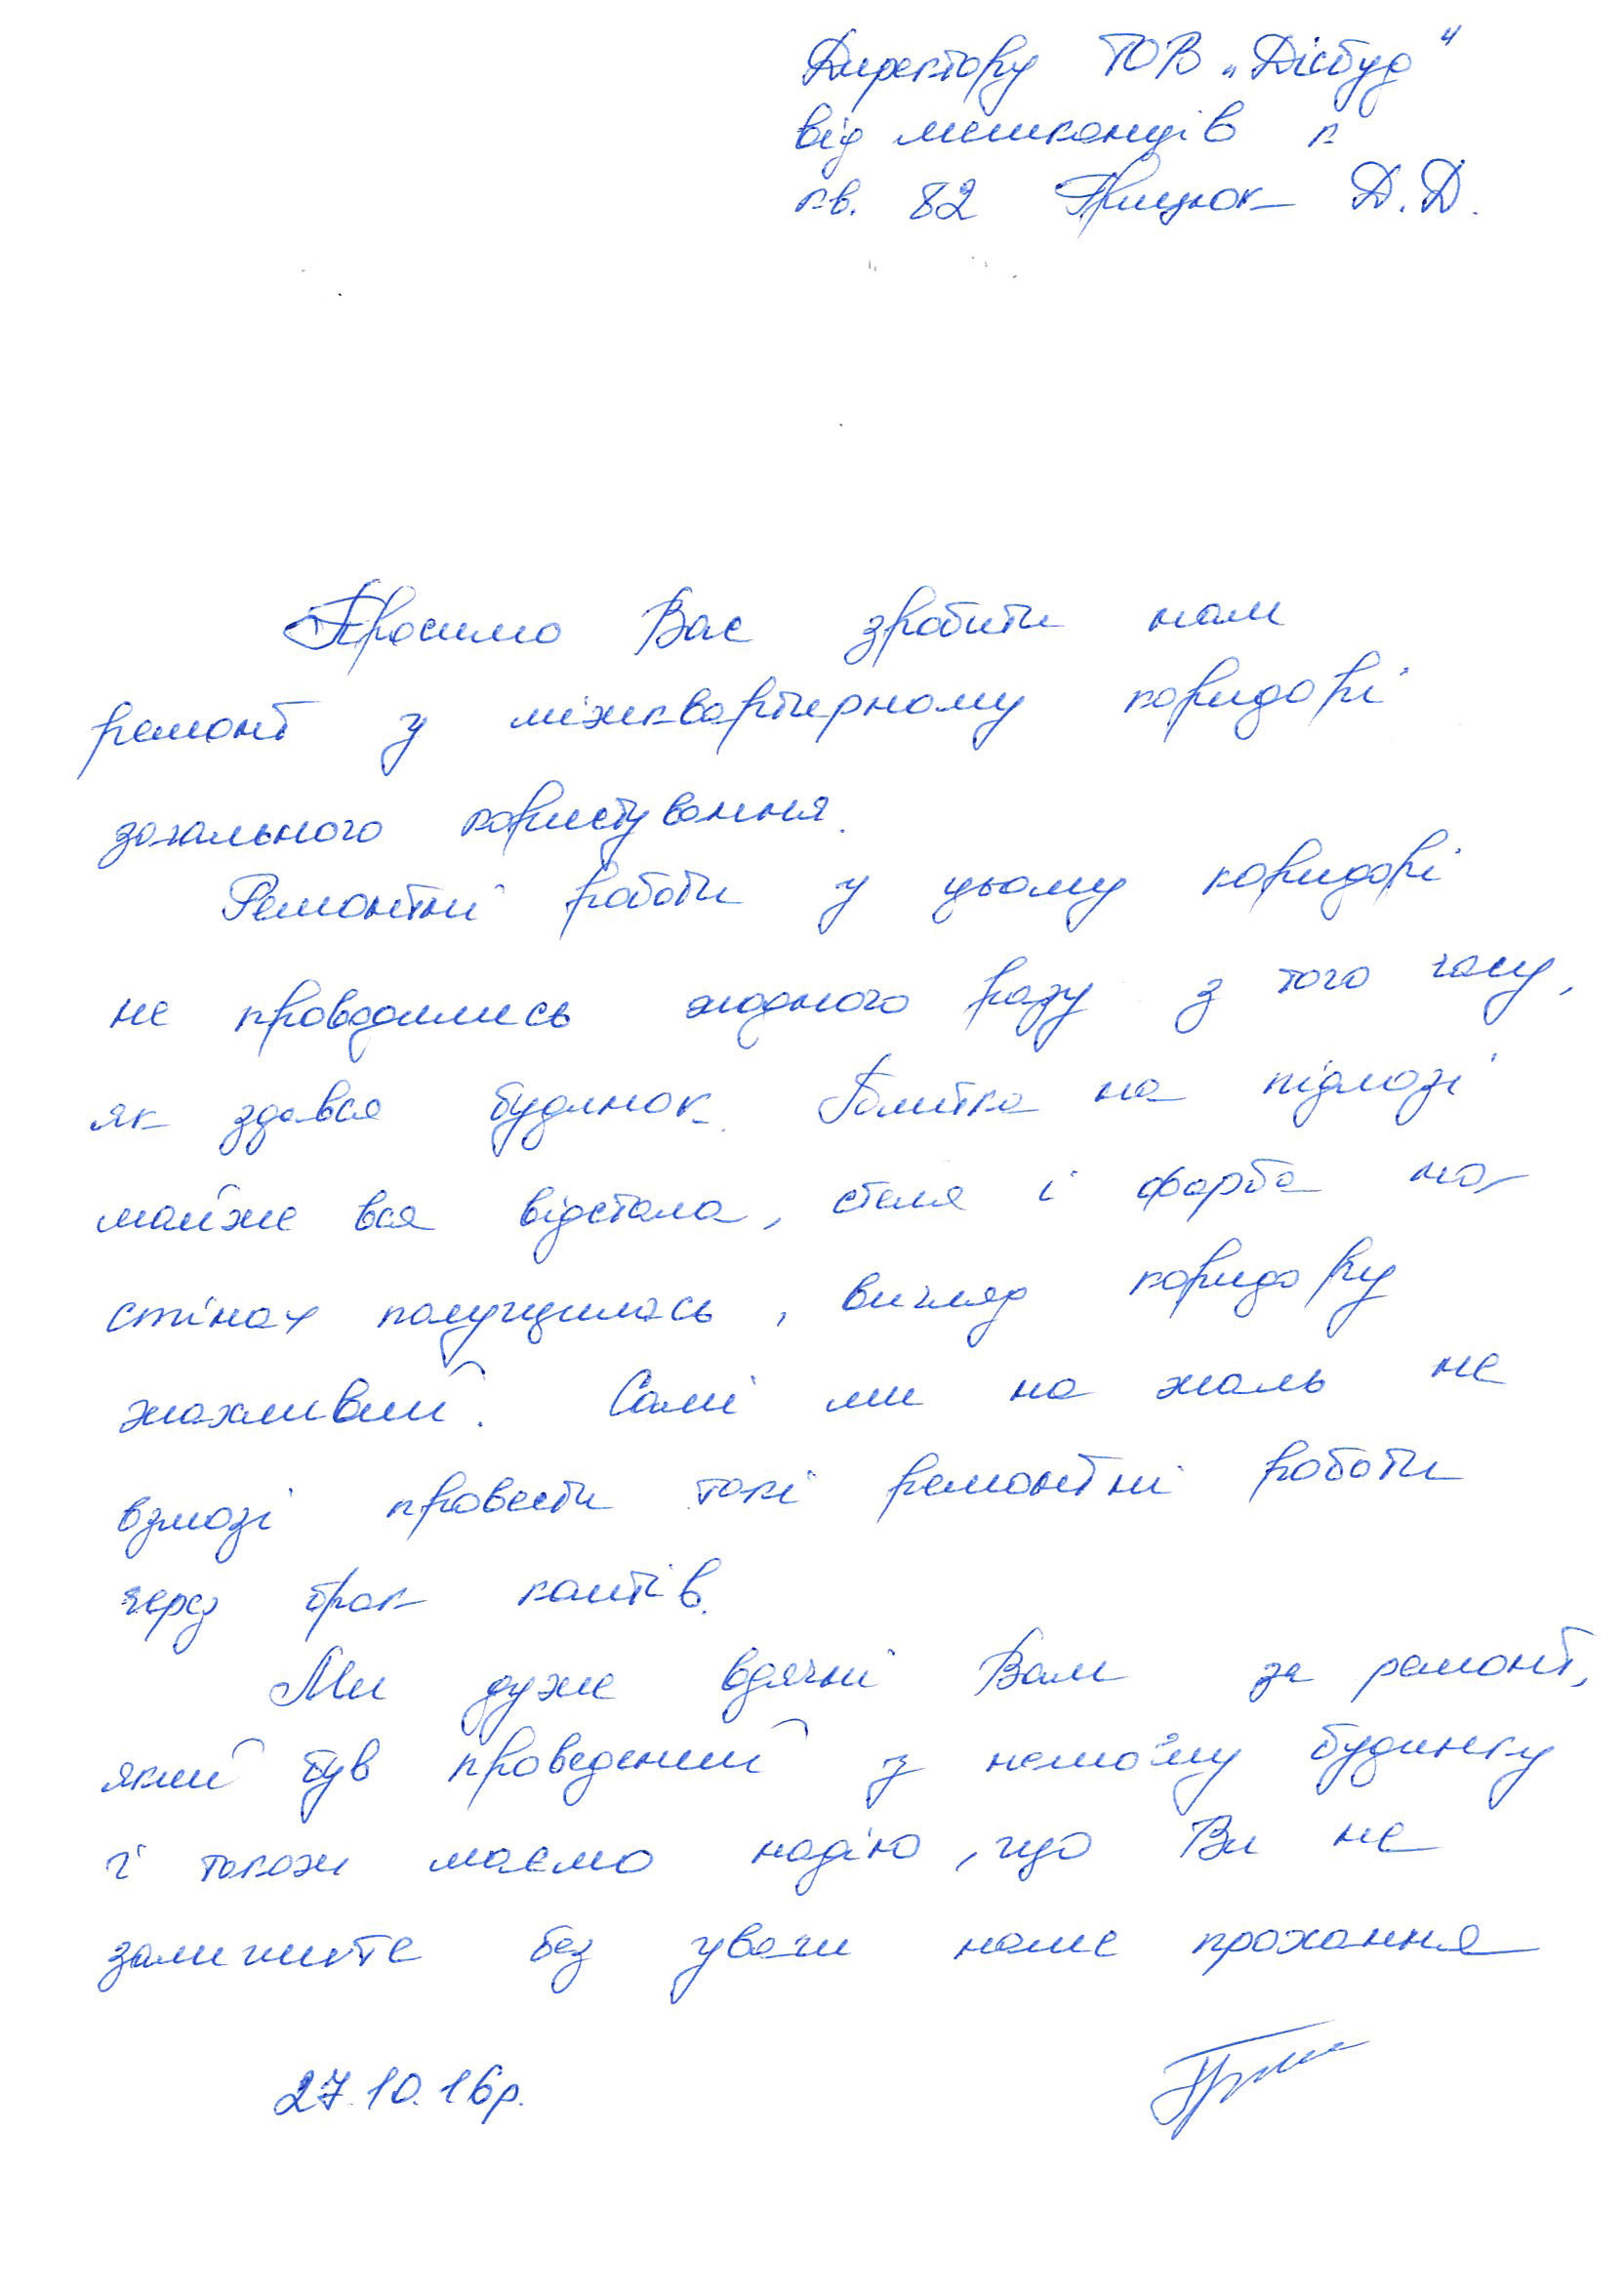 Директору ТОВ „Дісбуд"
від мешканців к
кв. 82 Грицюк Д.Д.
Просимо Вас зробити нам
ремонт у міжквартирному коридорі
загального користування.
Ремонтні роботи у цьому коридорі
не проводились жодного разу з того часу,
як здався будинок. Плитка на підлозі
майже вся відстала, стеля і фарба на
стінах полущилась, вигляд коридору
жахливий. Самі ми на жаль не
взмозі провести такі ремонтні роботи
через брак коштів.
Ми дуже вдячні Вам за ремонт,
який був проведений у нашому будинку
і також маємо надію, що Ви не
залишите без уваги наше прохання
27.10.16р.